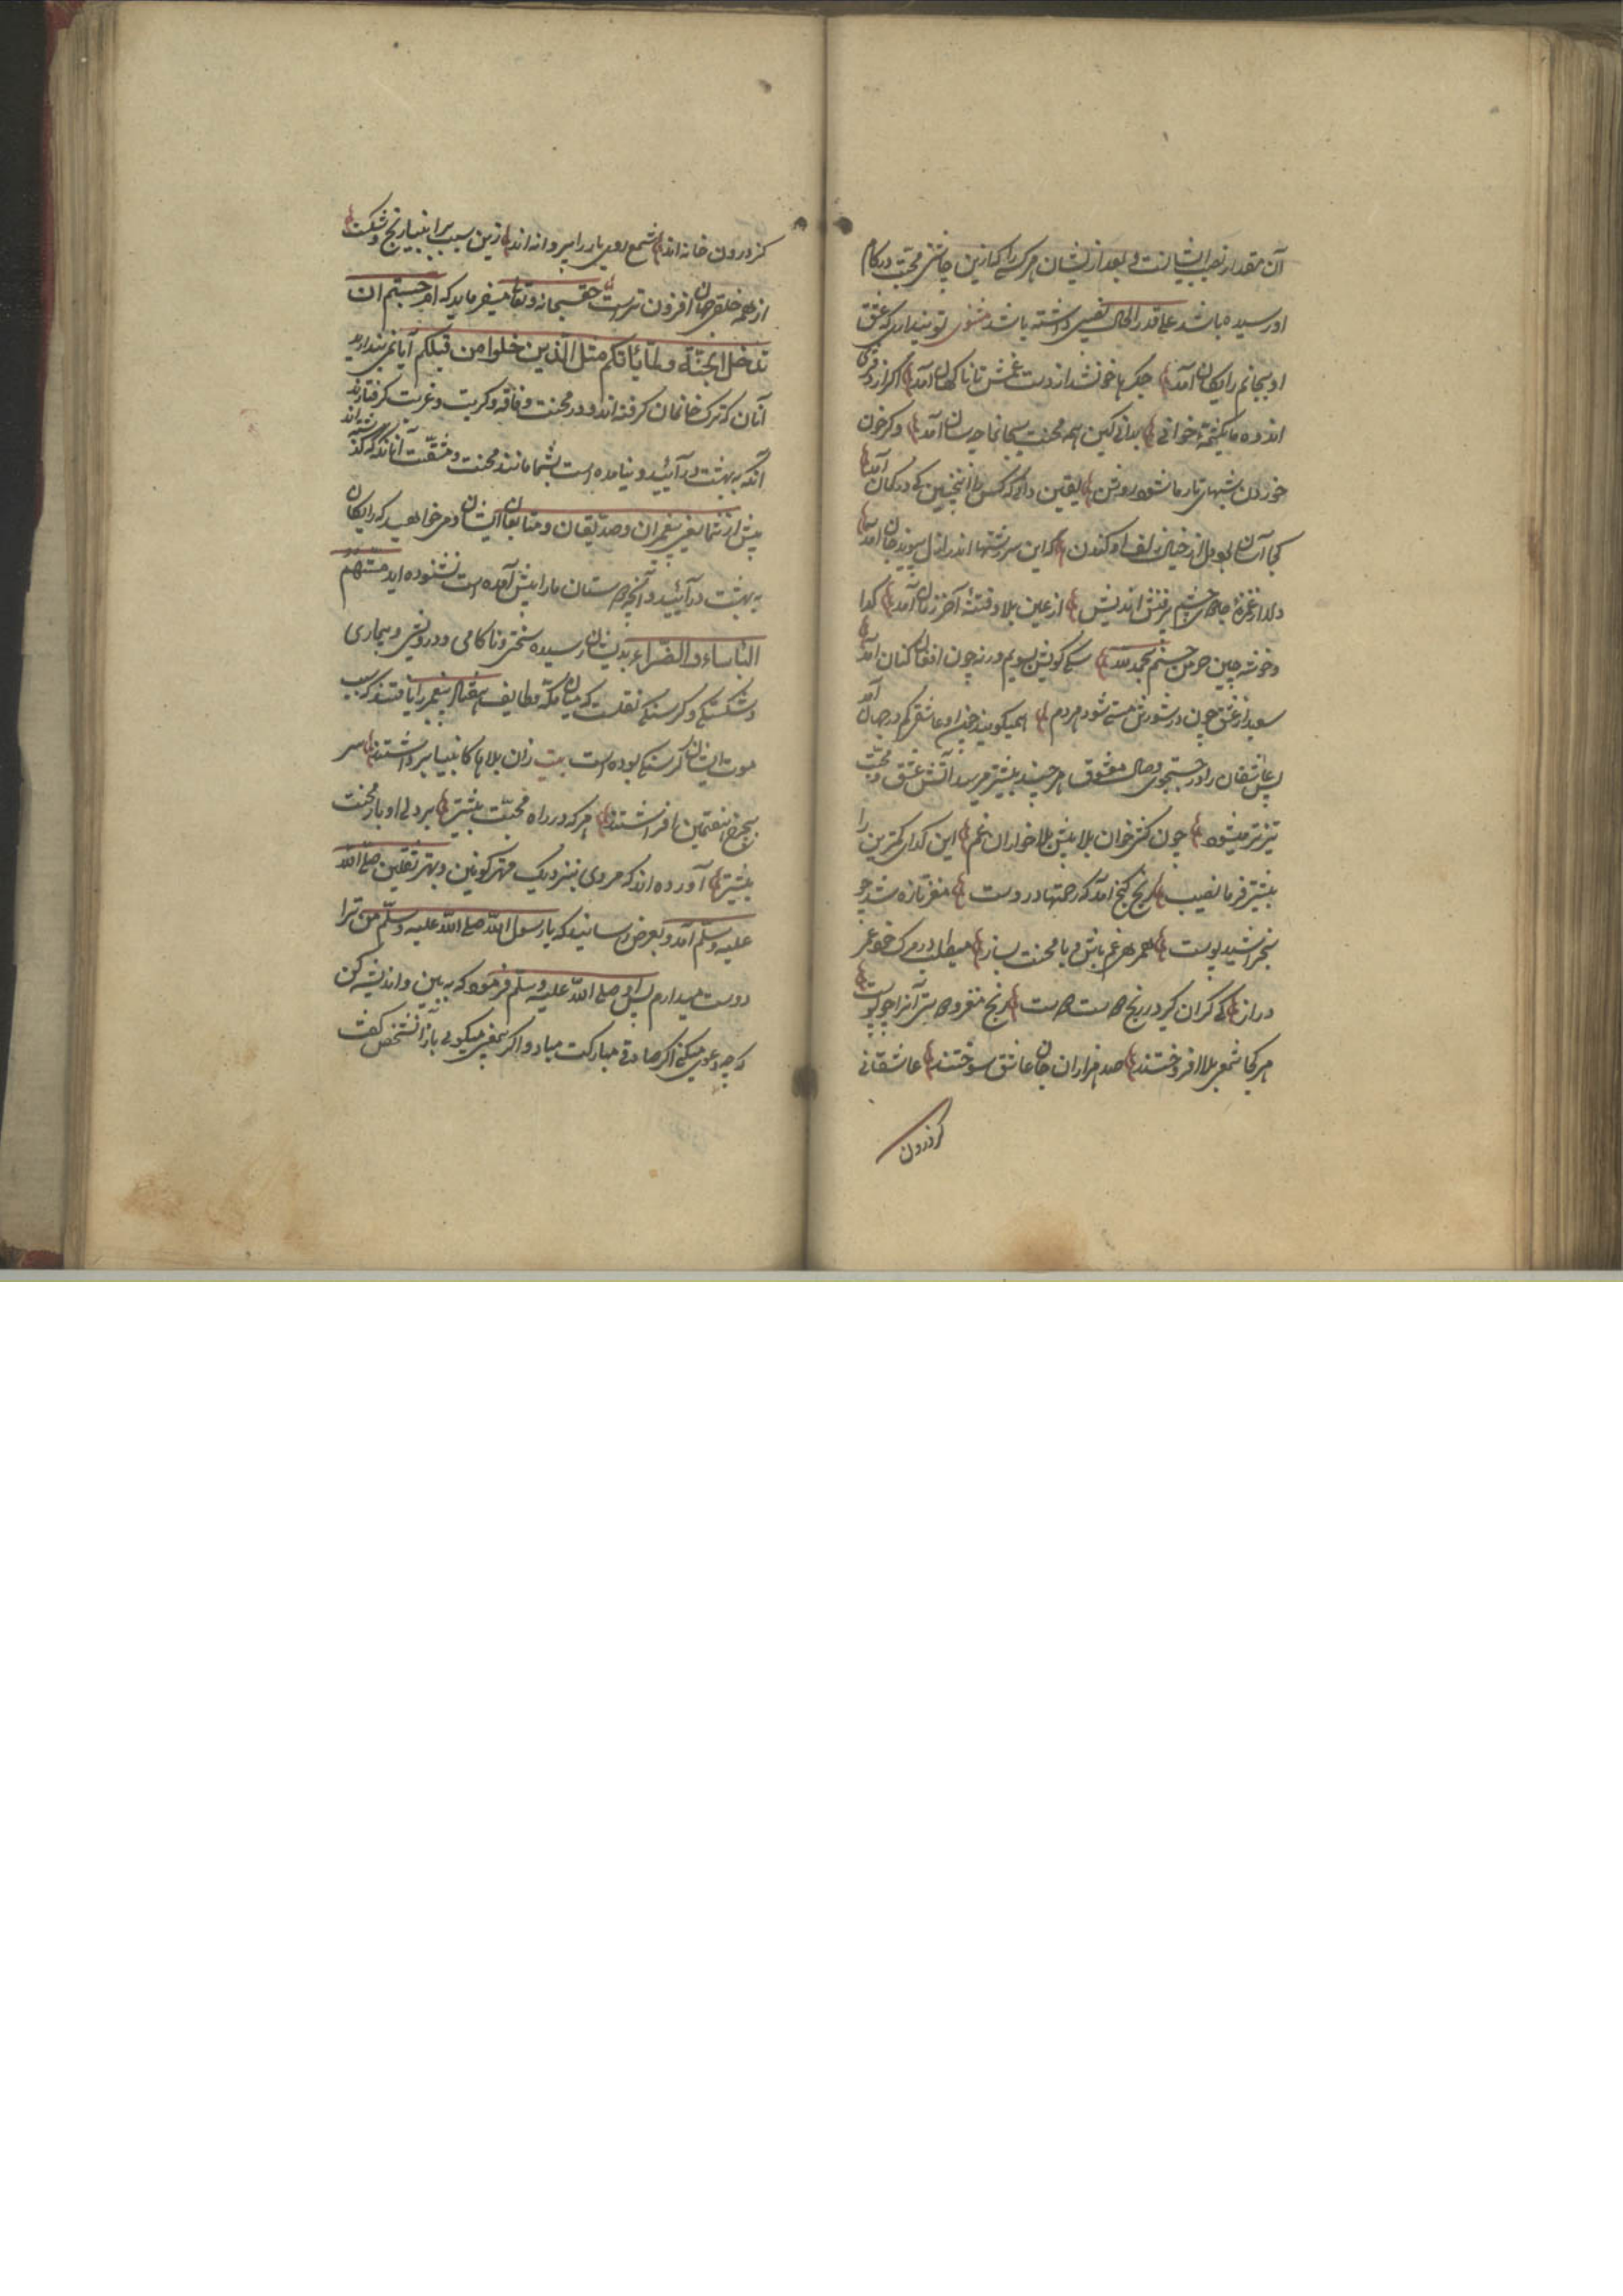 آن مقدار نصیب ایشانست و بعد از ایشان هر کسی را کزین چاشنی محبت در کام
او رسیده باشد علی قدر الحال نصیبی داشته باشد مثنوی تو پنداری که عشق
او بجانم رایکان آمد جکرها خون شد از دست غمش تا ناکهان آمد اکر از دفتر
اندوه ما یکشمه خوانی بدانی کین همه محنت بجان ما چسان آمد و کر خون
خوردن شبهای تار ما شود روشن یقین دانی که کس را اینچنین کی در کمان آمد
کجا آسان بود دل از خیال زلف او کندن که این سررشتها اندر ازل پیوند جان آمد
دلا از غمزهٔ چشم پرفتن اندیش از عین بلا و فتنهٔ آخر زمان آمد کدا
و خوشه چین خرمن حسنم بحمدلله سک کویش بویم ور نه چون افغان کنان آمد
سعید از عشق چون در شورش مستی شود هر دم همیکویند چون او عاشقی کم در جهان آمد
پس عاشقان را در جستجوی وصال معشوق هر چند بیشتر میرسد آتش عشق و محبت
تیزتر میشود چون کشی خوان بلا پیش بلا خواران غم این کدای کمترین را
بیشتر فرما نصیب رنج کنج آمد که رحمتها در اوست مغز تازه شد چو
بخراشید پوست همره غم باش و با محنت بساز میطلب در مرک خود عمر
دراز کی کران کیرد ز رنج رنج مغز و آنرا چو پوست
هر کجا شمع بلا افروختند صد هزاران جان عاشق سوختند عاشقانی
کز درون
کز درون خانه اند شمع روی یار را پروانه اند زین سبب بر انبیا رنج و شکست
از همه خلق جهان افزون ترست حق سبحانه و تعالی میفرماید که ام حسبتم ان
تدخلوا الجنة ولما یأتکم مثل الذین خلوا من قبلکم آیا نمی پندارید
آنان که ترک خانمان کرفته اند و در محنت و فاقه و کربت و غربت کرفتارند
آنکه به بهشت در آیید و نیامده است بشما مانند محنت و مشقت آنانکه کذشته اند
پیش از شما یعنی پیغمبران و صدیقان و متابعان ایشان و می خواهید که رایکان
به بهشت در آیید و آنچه بر دوستان ما را پیش آمده است نشنوده اید مستهم
البأساء والضراء بدیشان رسیده سختی و ناکامی و درویشی و بیماری
و شکستکی و کرسنکی نقلست که میان مکه و طایف هفتاد پیغمبر را یافتند که سبب
موت ایشان کرسنکی بوده است بیت زان بلاها کانبیا برداشتند سر
بچرخ هفتمین افراشتند هر که در راه محبت بیشتر بر دل او بار محنت
بیشتر آورده اند که مردی بنزدیک مهتر کونین و بهتر ثقلین صلی الله
علیه وسلم آمد و بعرض رسانید که یا رسول الله صلی الله علیه وسلم من ترا
دوست میدارم پس او صلی الله علیه وسلم فرمود که به بین و اندیشه کن
که چه دعوی میکنی اکر صادقی مبارکت مباد و اکر میکویی باز آنشخص کفت